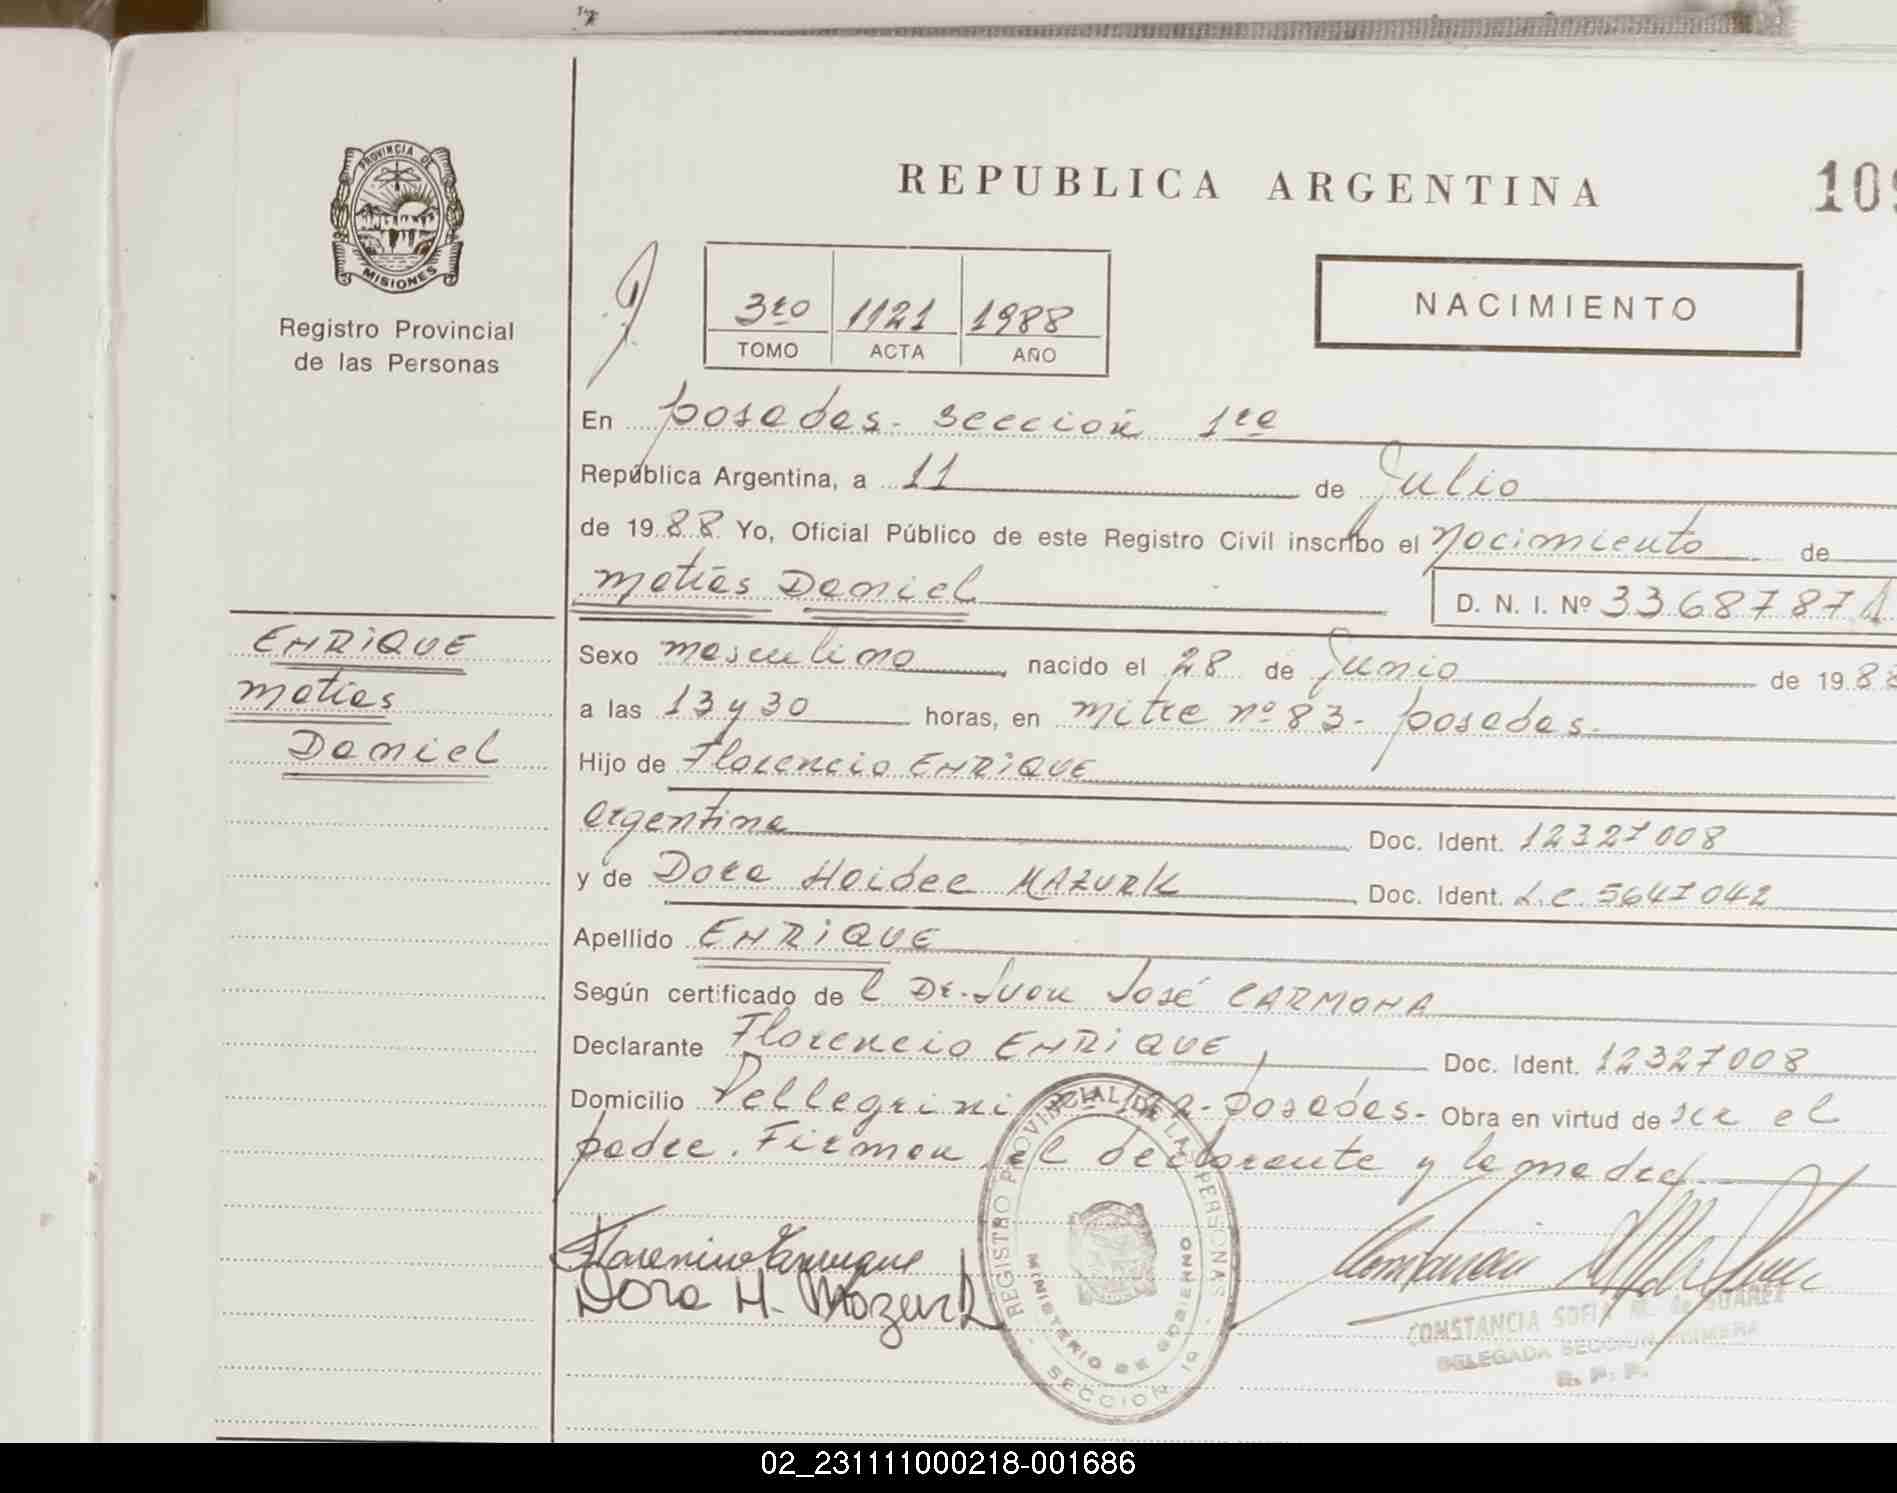 PROVINCIA DE
MISIONES
Registro Provincial
de las Personas
REPUBLICA ARGENTINA
3ro 1121 1988
TOMO ACTA AÑO
NACIMIENTO
En posadas. sección 1ra
República Argentina, a 11 de Julio
de 1988 Yo, Oficial Público de este Registro Civil inscribo el nacimiento de
Matías Daniel
D. N. I. Nº 33687871
ENRIQUE
Matías
Daniel
Sexo masculino nacido el 28 de Junio de 1988
a las 13 y 30 horas, en mitre nº 83 - posadas.
Hijo de Florencio ENRIQUE
argentina Doc. Ident. 12327008
y de Dora Haidee MAZURK Doc. Ident. L.C. 5647042
Apellido ENRIQUE
Según certificado de l Dr. Juan José CARMONA
Declarante Florencio ENRIQUE Doc. Ident. 12327008
Domicilio Pellegrini - posadas - Obra en virtud de ser el
padre. Firman el declarante y la madre
Dora H. Mazurk
REGISTRO PROVINCIAL DE LAS PERSONAS
MINISTERIO DE GOBIERNO
SECCION 1a
CONSTANCIA SOFIA M. de SUAREZ
DELEGADA SECCION PRIMERA
R. P. P.
02_231111000218-001686